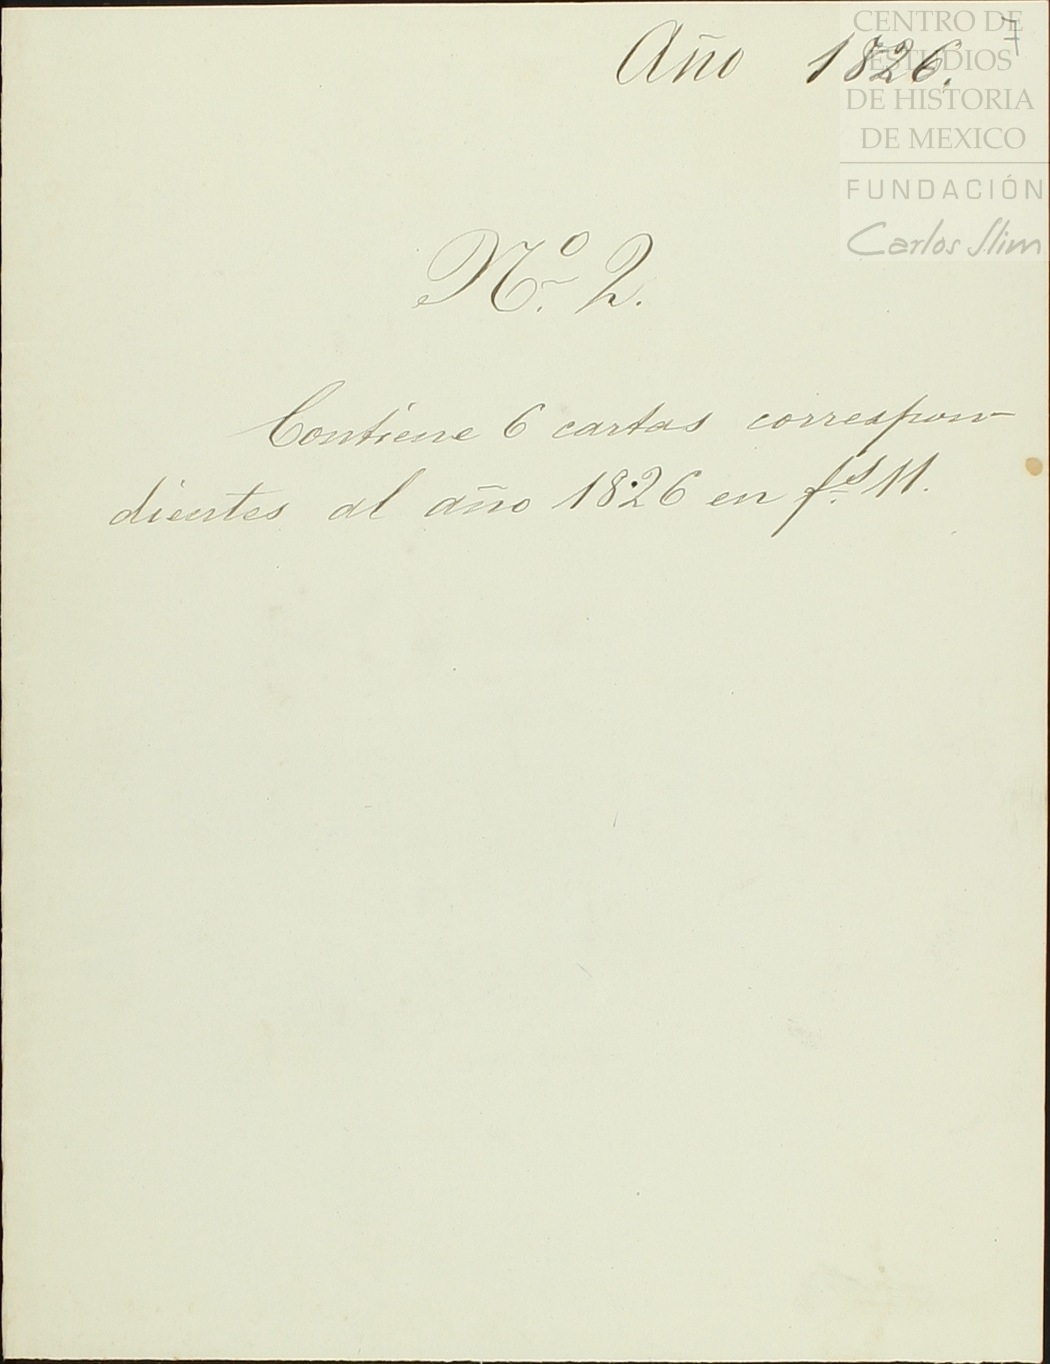 Año 1826.
7
CENTRO DE
ESTUDIOS
DE HISTORIA
DE MEXICO
FUNDACIÓN
Carlos Slim
Nº. 2.
Contiene 6 cartas correspon-
dientes al año 1826 en fs. 11.